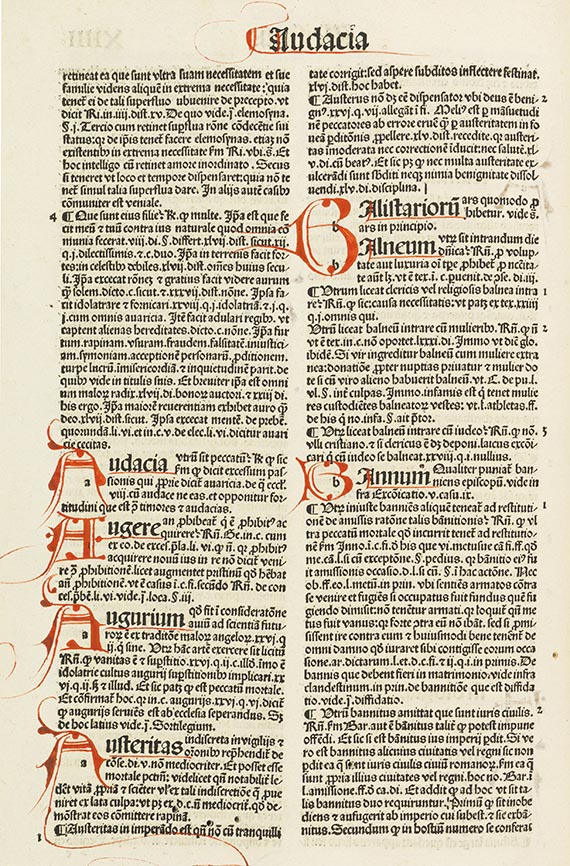 Audacia
retineat ea que sunt vltra suam necessitatem et sue
familie videns aliquē in extrema necessitate: quia
tenet̄ ei de tali superfluo subuenire de precepto. vt
dicit Ri. in .iiij. dist. xv. De quo vide .j. elemosyna.
§. j. Tercio cum retinet supflua rōne cōdecētie sui
status: qr de ipis tenet̄ facere elemosynas. etiā nō
existentib̄ in extrema necessitate fm̄ Ri. vbi .s. Et
hoc intelligo cū retinet amore inordinato. Secus
si teneret vt loco et tempore dispensaret: quia nō te
net̄ simul talia superflua dare. In alijs autē casib̄
cōmuniter est veniale.
4 ¶ Que sunt eius filie: R. φ multe. Ipa est que fe
cit meū et tuū contra ius naturale quod omnia cō
munia fecerat. viij. di. §. differt. xlvij. dist. sicut. xij.
q. j. dilectissimis. et .c. duo. Ipa in terrenis facit for
tes: in celestib̄ debiles. xlvij. dist. om̄es huius secu
li. Ipa excecat rōnez et gratius facit videre aurum
φ solem. dicto .c. sicut. et .xxvij. dist. nōne. Ipsa fa
cit idolatrare et fornicari. xxviij. q. j. idolatria. et .j. q.
j. cum omnis auaricia. Itē facit adulari regib̄. vt
captent alienas hereditates. dicto .c. nōne. Ipa fur
tum. rapinam. vsuram. fraudem. falsitatē. iniustici
am. symoniam. acceptionē personarū. proditionem.
turpe lucrū. imisericordiā. et inquietudinē parit. de
quib̄ vide in titulis suis. Et breuiter ipa est omni
um malorum radix. xlvij. di. bonorum auctori. et .xxiij. di.
his ergo. Ipa maiorē reuerentiam exhibet auro φ
deo. xlvij. dist. sicut. Ipsa excecat mentē. de preben.
quorundā. li. vi. et in .c. v. de elec. li. vi. dicitur auari
cie cecitas.
Audacia vtrū sit peccatū: R. φ sic
a fm̄ φ dicit excessum pas
sionis qui proprie dicit̄ auaricia. de q̄ eccl̄i.
viij. cū audace ne eas. et opponitur for
titudini que est per timores et audacias.
Augere an prohibeat̄ q̄ ē prohibit̄ ac
quirere: Rn̄. Ge. in .c. cum
a ex eo. de excel. pla. li. vi. φ n̄. qr prohibit̄
acquirere noui ius in re nō dicit̄ veni
re prohibitionē. licet augmentet pristinū qd̄ hēbat
an̄ prohibitionē. vt ē casus i .c. fi. secūdo Rn̄. de con
cel. pben. li. vi. vide .j. loca. §. iij.
Augurium qd̄ fit i consideratōne
auiū ad scientiā futu
a rorum ē ex traditōe malorum angelorum. xxvj. q
ij. q̄ sine. Vtrū hāc artē exercere sit licitū
Rn̄. φ vanitas ē et supstitio. xxvj. q. ij. c. illō. imo ē
idolatrie cultus augurij supstitionib̄ implicari. xx
vj. q. ij. si. et illud. Et sic patz φ est peccatū mortale.
Et cōfirmat̄ hoc. qr in .c. augurijs. xxvj. q. vi. dicit̄
φ augurijs seruiēs est ab ecclesia seperandus. Sz
de hoc latius vide .j. Sortilegium.
Austeritas indiscreta in vigilijs et
orōnib̄ repbendit̄ de
a cōse. di. v. nō mediocriter. Et posset esse
mortale pctm̄: videlicet qn̄ notabilit̄ le
det vitā propriā et sciēter vl̄ ex tali indiscretiōe φ pue
niret ex lata culpa: vt patz ex d. c. n̄ mediocrit̄. qd̄ de
mōstrat eos cōmittere rapinā.
1 ¶ Austeritas in imperādo est qn̄ nō cū tranquilli
tate corrigit: sed aspere subditos inflectere festinat.
xlvi. dist. hoc habet.
¶ Austerus nō dz eē dispensator vbi deus ē beni- 2
gn̄. xxvj. q. vij. allegāt̄ i fi. Meli est per māsuetudi
nē peccatores ab errore eruē φ per austeritatem in fo
ueā perditōnis propellere. xlv. dist. recedite. qr austeri
tas imoderata nec correctionē iducit: nec salutē. xl
v. di. cū beat̄. Et sic patz φ nec multa austeritate ex
ulcerādi sunt sbditi necqz nimia benignitate dissol
uendi. xlv. di. disciplina.
Balistariorū ars quomodo pro
b hibetur. vide .s.
ars in principio.
Balneum vtz sit intrandum die
b dn̄ica: Rn̄. pro volup-
tate aut luxuria oi tpe. prohibet̄ pro ncc̄ita-
te aut lz. vt ē tex. i .c. j. de cōse. di. iij.
¶ Vtrum liceat clericis vel religiosis balnea intra 1
re: Rn̄. φ sic: causa necessitatis: vt patz ex tex. xxiij
q. j. omnis qui.
Vtrū liceat balneū intrare cū mulierib̄. Rn̄. φ n̄ 2
vt ē tex. in .c. nō oportet. lxxxi. di. Immo vt dic̄ glo.
ibidē. Si vir ingreditur balneū cum muliere extra
nea: donatiōe propter nuptias priuatur et mulier do
te si cū viro alieno habuerit balneū. vt. C. de pu. l.
vl. §. int̄ culpas. Immo. infamis est q̄ tenet mulie
res custodiētes balneatorum vestes: vt. l. athletas. ff.
de his q̄ no. infa. §. ait ptor.
¶ Vtrū liceat balneū intrare cū iudeo: Rn̄. φ nō. 3
vlli cristiano. et si clericus ē dz deponi. laicus excōi
cari q̄ cū iudeo se balneat. xxviij. q. i. nullus.
Bannum Qualiter puniat̄ ban-
b niens episcopū. vide in
fra Excōicatio. v. casu .ix.
¶ Vtrz iniuste banniēs aliquē teneat̄ ad restituti- 1
onē de amissis ratōne talis bānitionis: Rn̄. φ vl
tra peccatū mortale qd̄ incurrit tenet̄ ad restitutio-
nē fm̄ Inno. i .c. fi. d̄ his que vi. metusue cā fi. ff. qd̄
me. cā. l. si cū exceptiōe. §. pedius. qr bānitio ei fu
it amissionis occasio. d. l. si cū. §. i hac actōne. Ad ac
ob. ff. eo. l. metū. in prin. vbi sentiēs armatos cōtra
se venire et fugiēs si occupatus fuit fundus quē fu
giendo dimisit: nō tenētur armati. qr loquit̄ qn̄ me
tus fuit vanus: qr forte prope tra eū nō ibāt. sed si pmi
sissent ire contra eum et huiusmodi bene tenent̄ de
omni damno qd̄ iuraret sibi contigisse eorum occa
sione. ar. dictarum. l. et d. c. fi. et ij. q. i. in primis. De
bannis que debent fieri in matrimonio. vide infra
clandestinum. in prin. de bannitiōe que est diffida
tio. vide .j. diffidatio.
¶ Vtrū bannitus amittat que sunt iuris ciuilis. 2
Rn̄. fm̄ Bar. aut ē bānitus talit̄ φ potest impune
offēdi. Et sic si est bānitus ius imperij pdit. Si ve
ro est bannitus alicuius ciuitatis vel regni sic non
pdit ea q̄ sunt iuris ciuilis ciuiū romanorum. fm̄ ea q̄
sunt propria illius ciuitatis vel regni. hoc no. Bar. i
l. amissione. ff. d̄ ca. di. Et addit φ ad hoc vt sit ta-
lis bannitus duo requiruntur. Primū φ sit inobe
diens et aufugerit ab imperio cui subest. et sic exbā
nitus. Secundum φ in hostiū numero se conferat